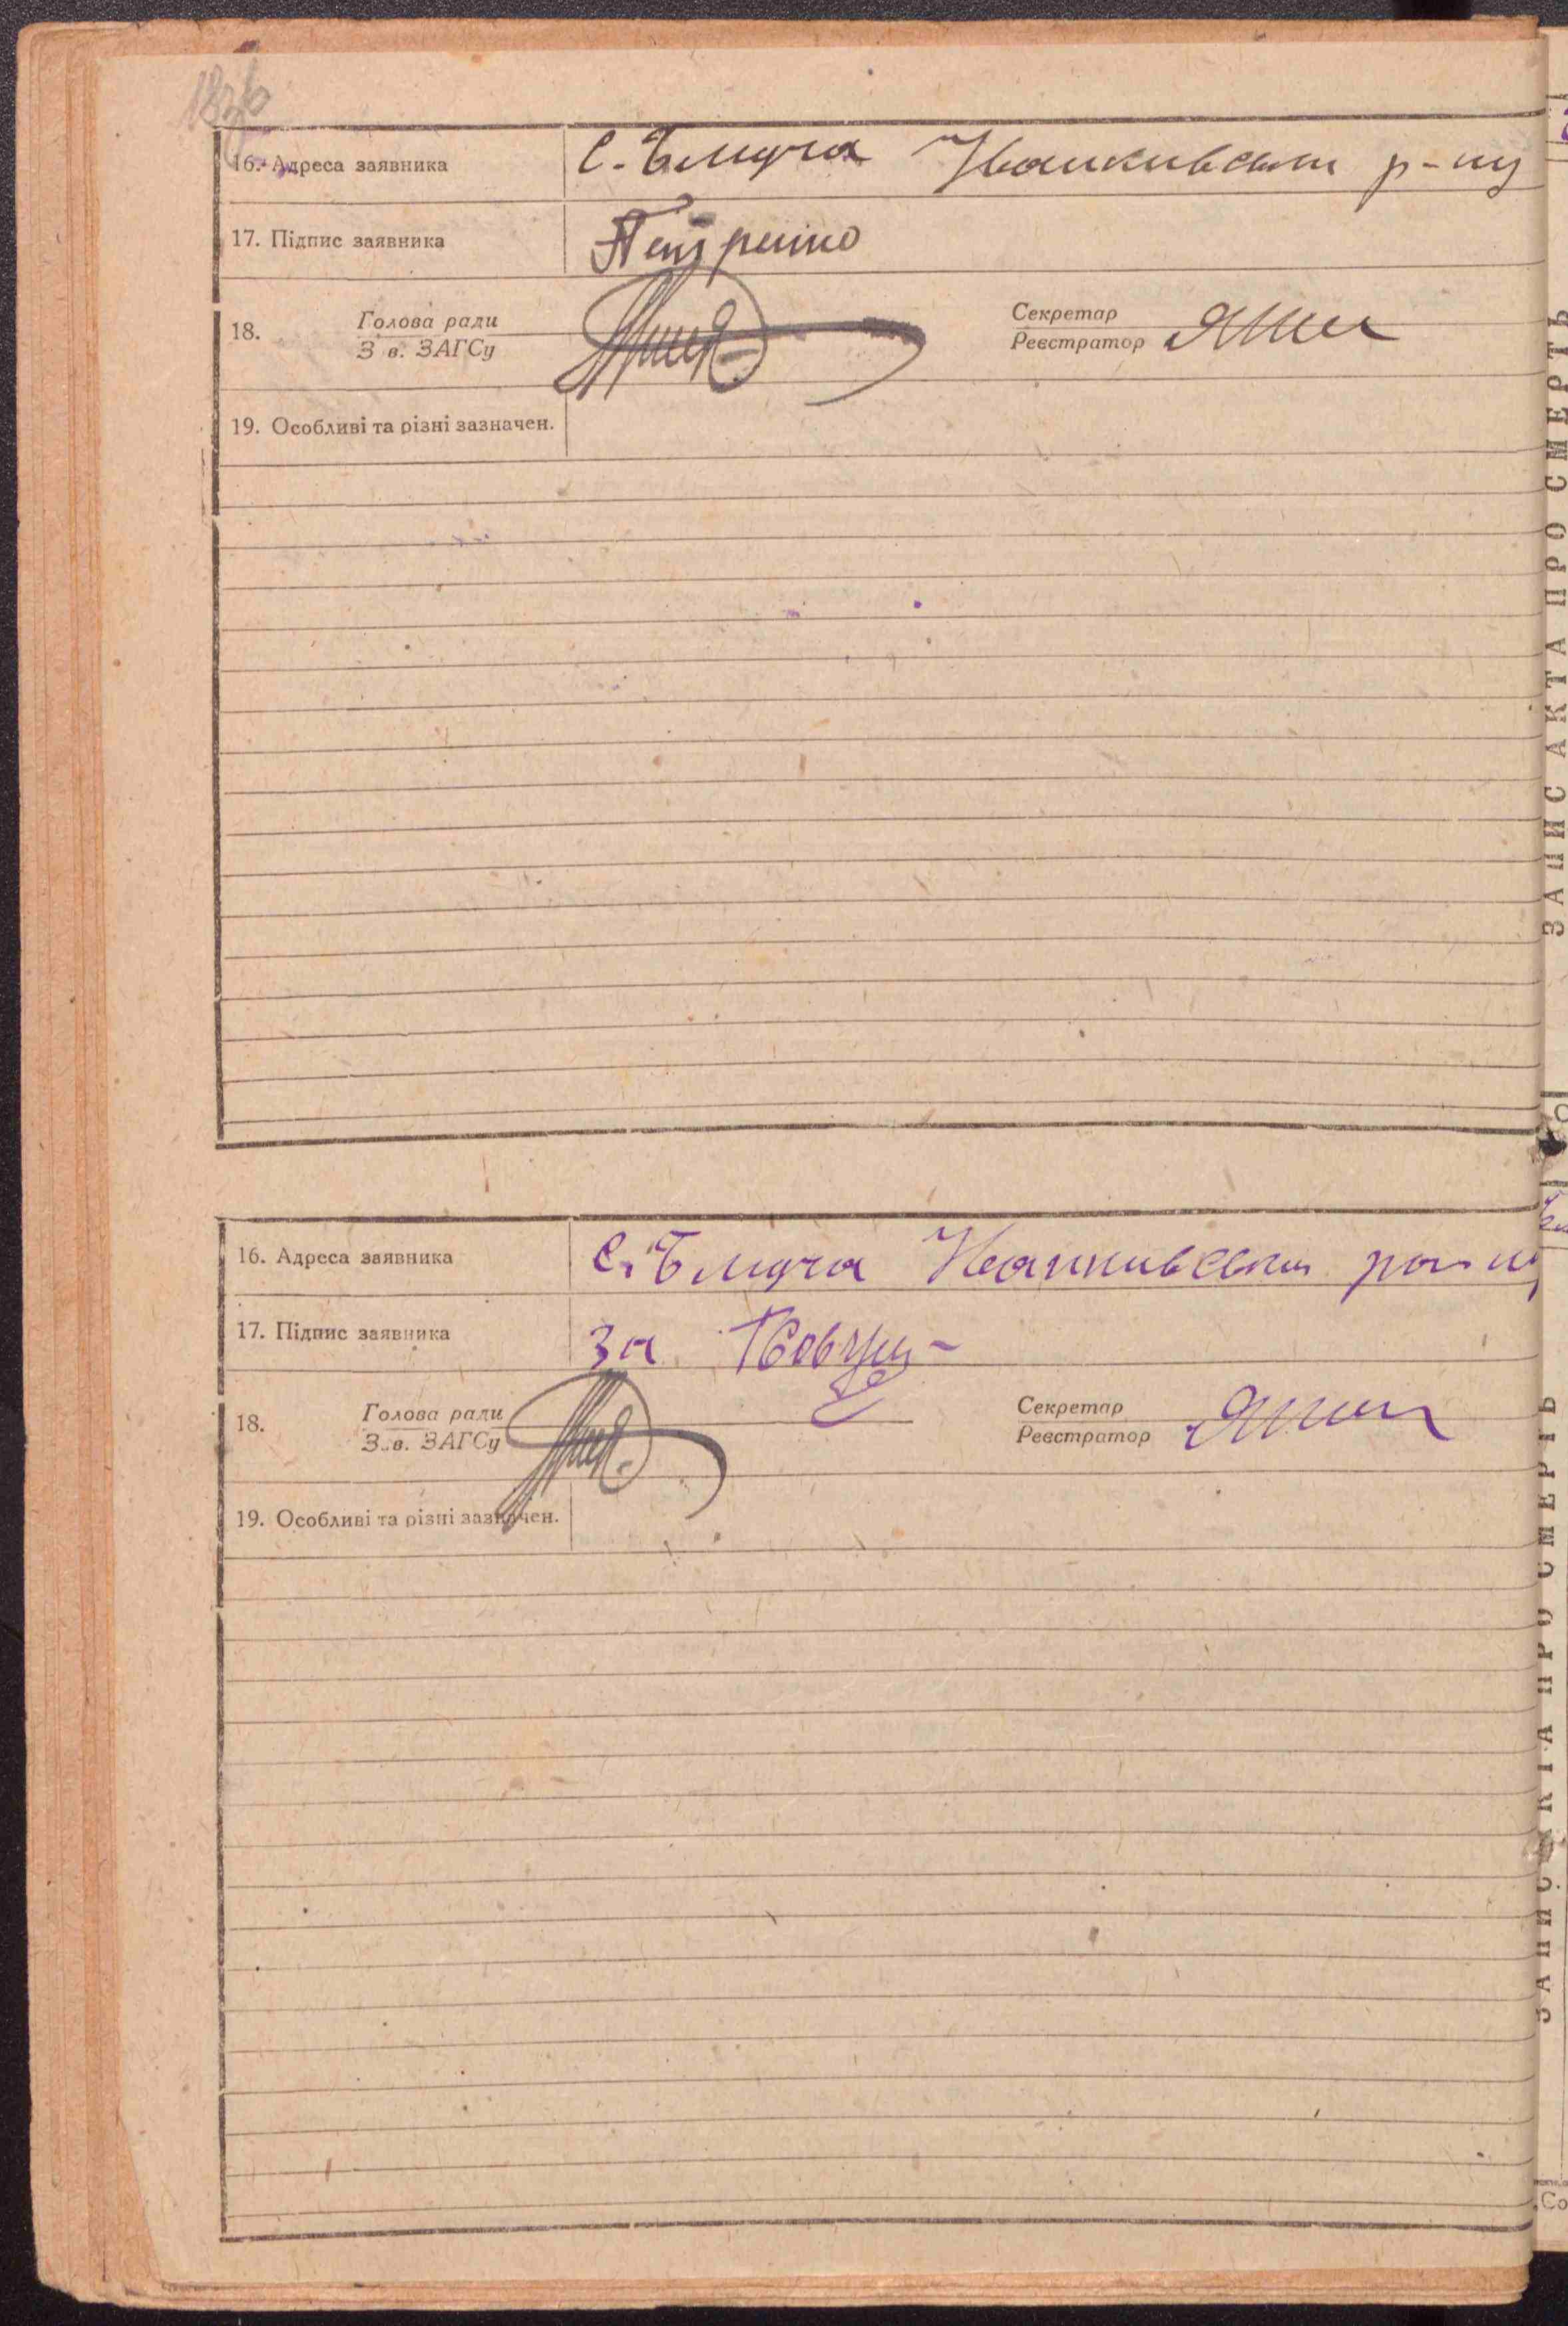 183б
16. Адреса заявника С. Блидча Іванківськ р-ну
17. Підпис заявника Петренко
18. Голова ради
З в. ЗАГСу
Секретар
Реєстратор
19. Особливі та різні зазначен.
16. Адреса заявника С. Блидча Іванківськ рай-ну
17. Підпис заявника за
18. Голова ради
З. в. ЗАГСу
Секретар
Реєстратор
19. Особливі та різні зазначен.
ЗАПИС АКТА ПРО СМЕРТЬ
ЗАПИС АКТА ПРО СМЕРТЬ